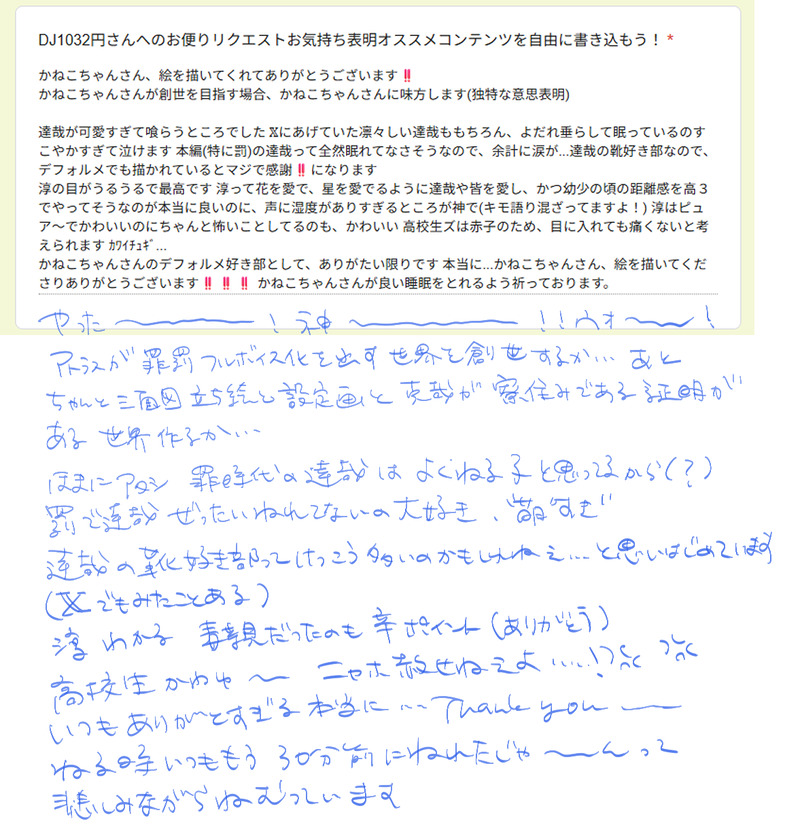 DJ1032円さんへのお便りリクエストお気持ち表明オススメコンテンツを自由に書き込もう！ *
かねこちゃんさん、絵を描いてくれてありがとうございます‼️
かねこちゃんさんが創世を目指す場合、かねこちゃんさんに味方します(独特な意思表明)
達哉が可愛すぎて喰らうところでした Xにあげていた凛々しい達哉ももちろん、よだれ垂らして眠っているのす
こやかすぎて泣けます 本編(特に罰)の達哉って全然眠れてなさそうなので、余計に涙が...達哉の靴好き部なので、
デフォルメでも描かれているとマジで感謝‼️になります
淳の目がうるうるで最高です 淳って花を愛で、星を愛でるように達哉や皆を愛し、かつ幼少の頃の距離感を高３
でやってそうなのが本当に良いのに、声に湿度がありすぎるところが神で(キモ語り混ざってますよ！) 淳はピュ
ア〜でかわいいのにちゃんと怖いことしてるのも、かわいい 高校生ズは赤子のため、目に入れても痛くないと考
えられます ｶﾜｲﾁｭｷﾞ...
かねこちゃんさんのデフォルメ好き部として、ありがたい限りです 本当に...かねこちゃんさん、絵を描いてくだ
さりありがとうございます‼️‼️‼️ かねこちゃんさんが良い睡眠をとれるよう祈っております。
やった〜！神〜!!ウオ〜！
アトラスが罪罰フルボイス化を出す世界を創世するか… あと
ちゃんと三面図立ち絵と設定画と克哉が寮住みである証明が
ある世界作るか…
ほまにアタシ 罪時代の達哉は よくねる子と思ってるから(？)
罰で達哉ぜったいねれてないの大好き、萌すぎ
達哉の靴好き部ってけっこう多いのかもしんねえ…と思いはじめています
(Xでもみたことある)
淳わかる 毒親だったのも辛ポイント(ありがとう)
高校生かわや〜 ニャホ赦せねえよ……!
いつもありがとすぎる本当に… Thank you 〜
ねる時いつももう30分前にねれたじゃ〜んって
悲しみながらねむっています